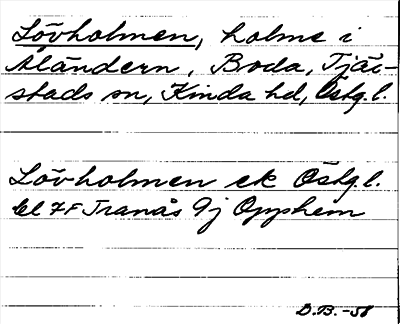 Lövholmen, holme i
Åländern, Boda, Tjär-
stads sn, Kinda hd, Östg.l.
Lövholmen ek Östg.l.
bl 7F Tranås 9j Opphem
D.B. -58